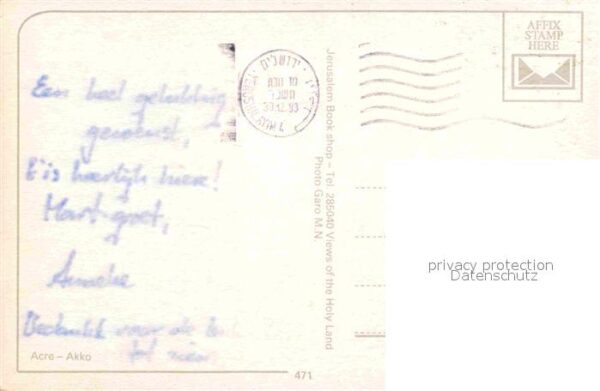 AFFIX
STAMP
HERE
ירושלים
JERUSALEM
30.12.93
Een heel gelukkig
gewenst,
't is heerlijk hier!
Hart. groet,
Anneke
Bedankt voor de
Jerusalem Book shop – Tel. 285040 Views of the Holy Land
Photo Garo M.N
privacy protection
Datenschutz
Acre – Akko
471